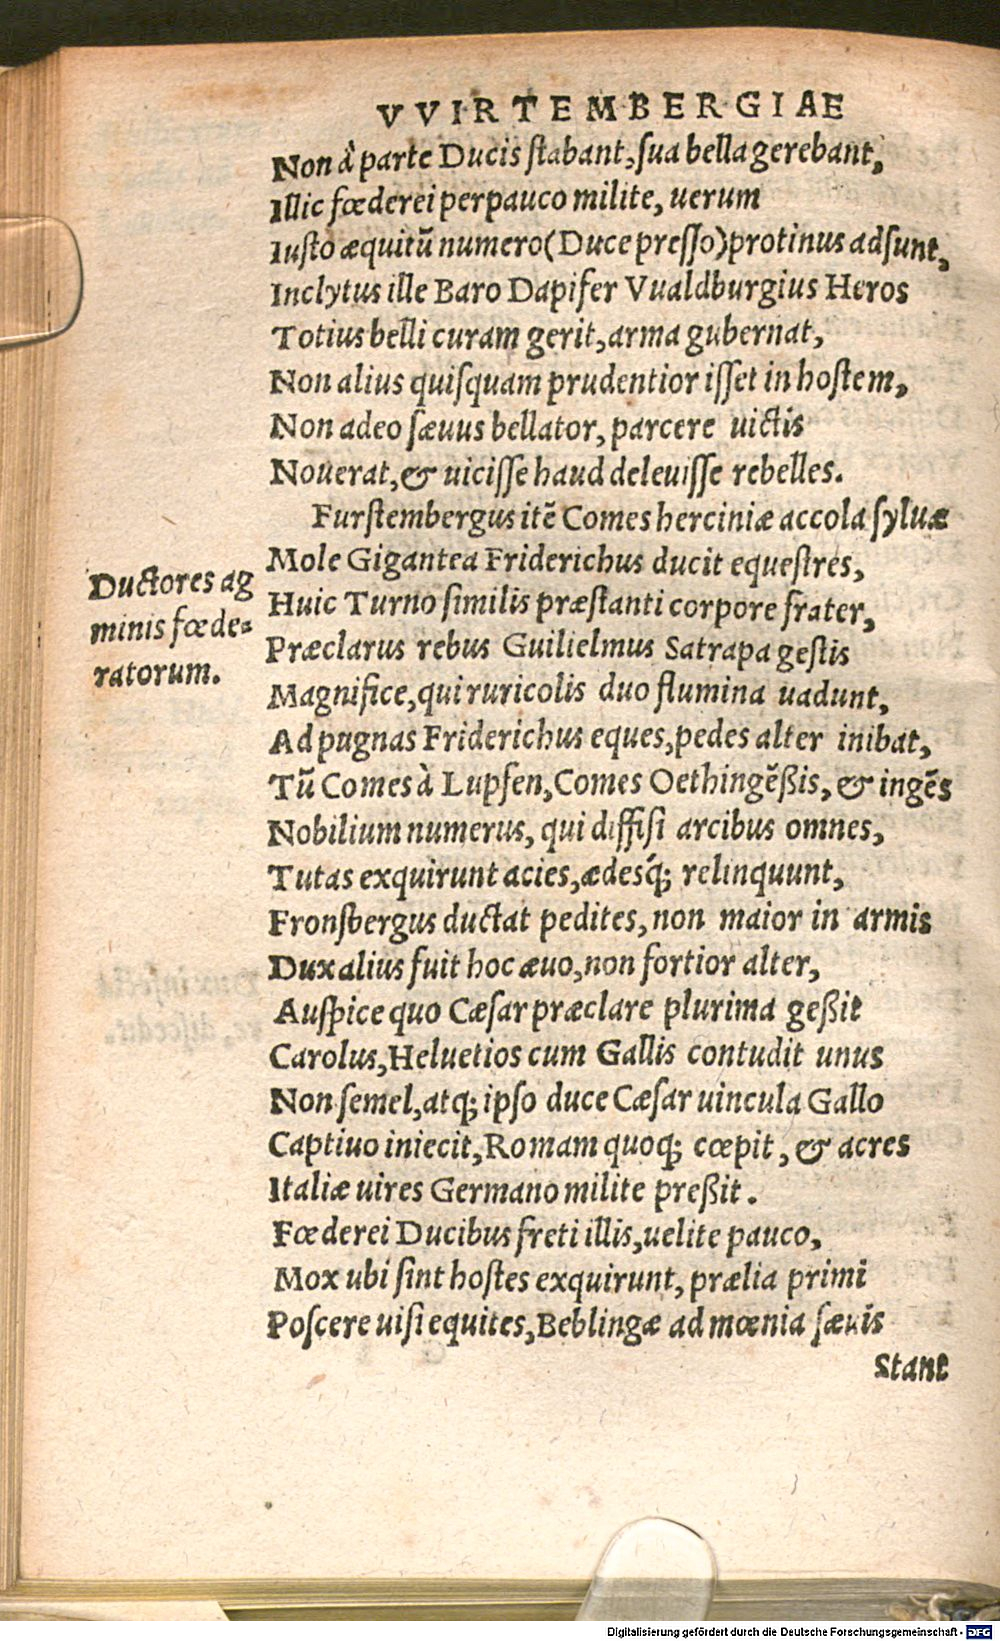 VVIRTEMBERGIAE
Non à parte Ducis ſtabant, ſua bella gerebant,
Illic fœderei perpauco milite, uerum
Iuſto æquitũ numero (Duce preſſo) protinus adſunt,
Inclytus ille Baro Dapifer Vualdburgius Heros
Totius belli curam gerit, arma gubernat,
Non alius quiſquam prudentior iſſet in hoſtem,
Non adeo ſæuus bellator, parcere uictis
Nouerat, & uiciſſe haud deleuiſſe rebelles.
Furſtembergus itẽ Comes herciniæ accola ſyluæ
Mole Gigantea Friderichus ducit equeſtres,
Ductores ag
minis fœde-
ratorum.
Huic Turno ſimilis præſtanti corpore frater,
Præclarus rebus Guilielmus Satrapa geſtis
Magnifice, qui ruricolis duo flumina uadunt,
Ad pugnas Friderichus eques, pedes alter inibat,
Tũ Comes à Lupfen, Comes Oethingẽßis, & ingẽs
Nobilium numerus, qui diffiſi arcibus omnes,
Tutas exquirunt acies, ædesq́; relinquunt,
Fronſbergus ductat pedites, non maior in armis
Dux alius fuit hoc æuo, non fortior alter,
Auſpice quo Cæſar præclare plurima geßit
Carolus, Heluetios cum Gallis contudit unus
Non ſemel, atq; ipſo duce Cæſar uincula Gallo
Captiuo iniecit, Romam quoq; cœpit, & acres
Italiæ uires Germano milite preßit.
Fœderei Ducibus freti illis, uelite pauco,
Mox ubi ſint hoſtes exquirunt, prælia primi
Poſcere uiſi equites, Beblingæ ad mœnia ſæuis
Stant
Digitalisierung gefördert durch die Deutsche Forschungsgemeinschaft - DFG